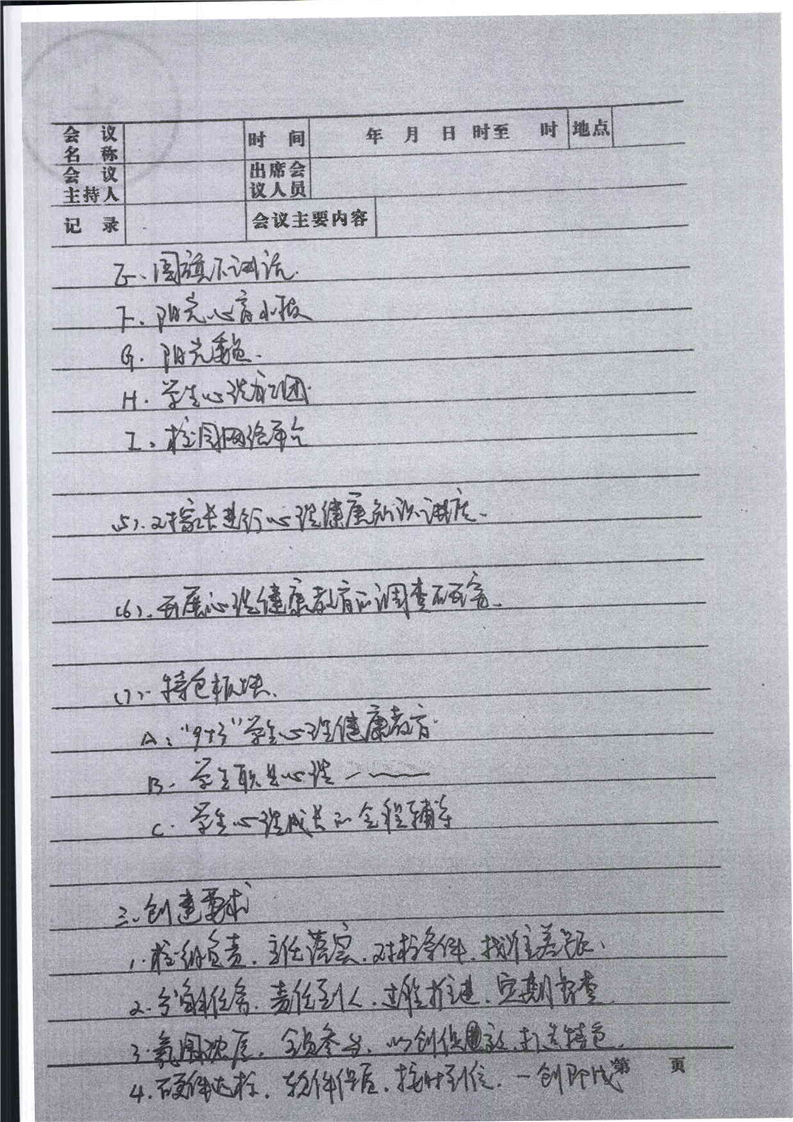 会议名称 时间 年 月 日 时至 时 地点
会议主持人 出席会议人员
记录 会议主要内容
E、国旗下讲话.
F、阳光心育小报
G、阳光信.
H、学生心理社团.
I、校园网络平台
(5)、对家长进行心理健康知识讲座.
(6)、开展心理健康教育的调查研究.
(7)、特色板块.
A、"9+3"学生心理健康教育.
B、学生职业心理
C、学生心理成长的全程辅导
三、创建要求
1、校级负责、主任落实、对标条件、找准差距、
2、分解任务、责任到人、过程推进、定期督查.
3、氛围浓厚、全员参与、以创促、打造特色.
4、硬件达标、软件保质、按时到位、一创即成
第 页